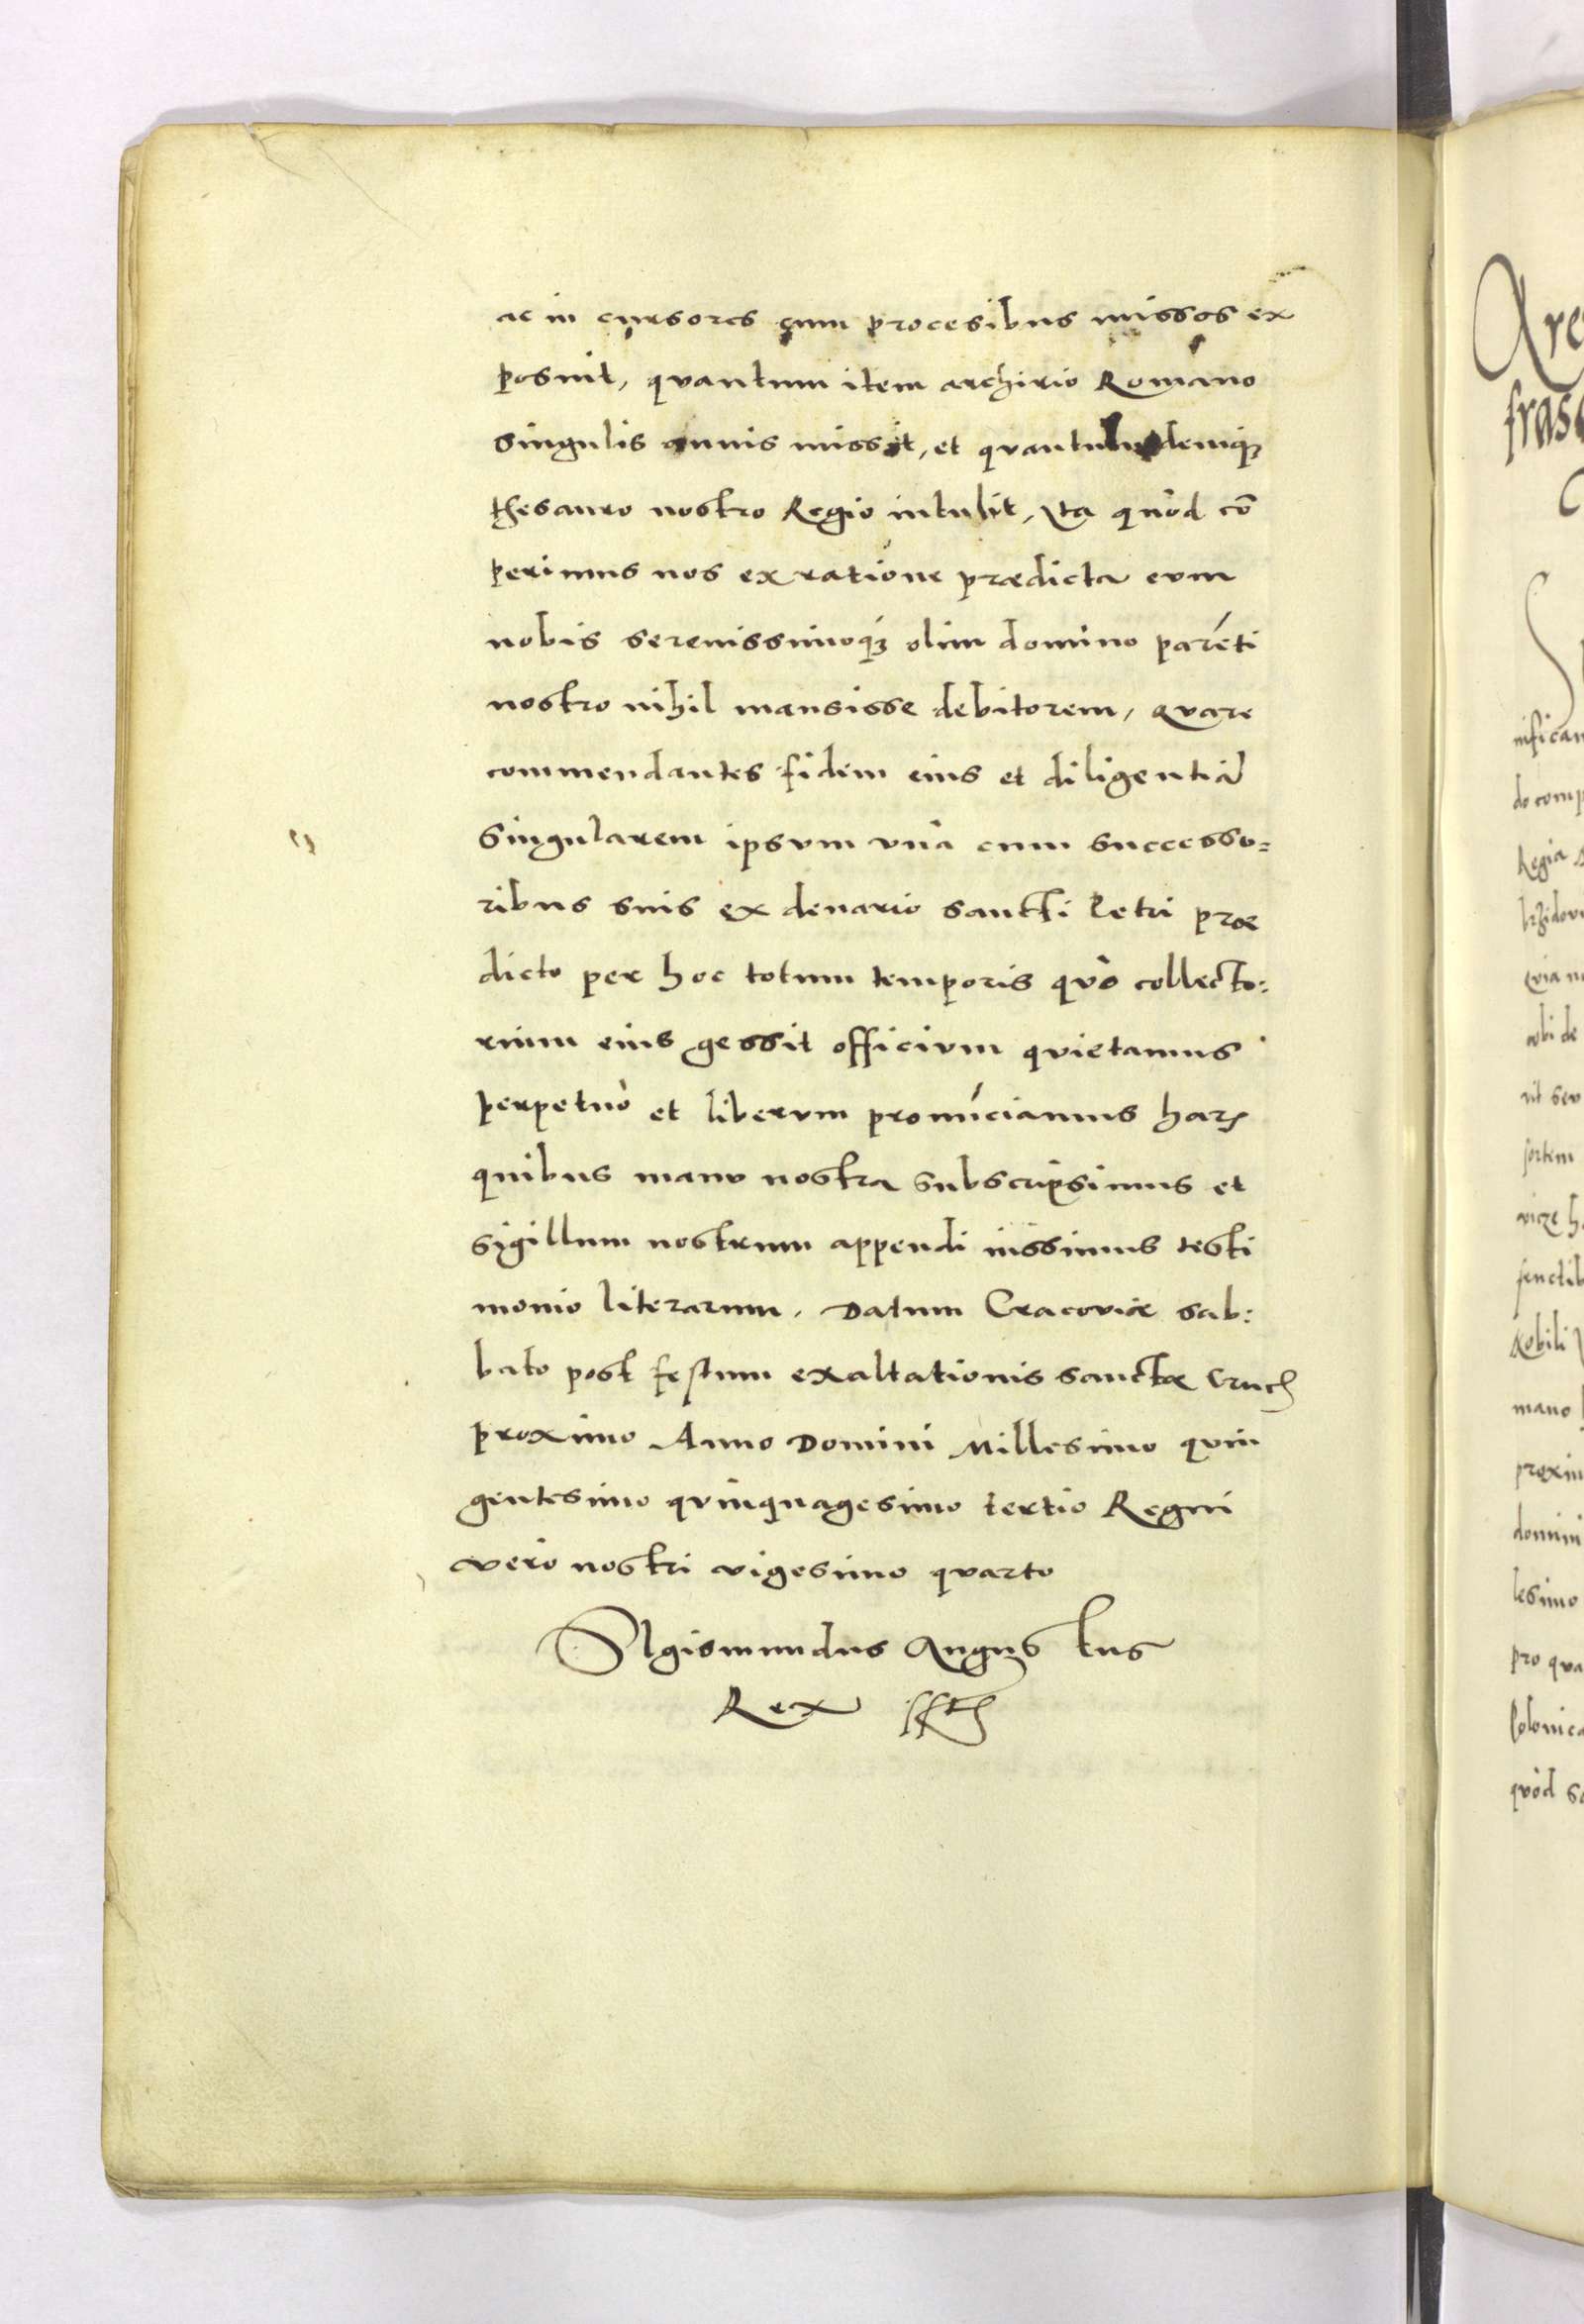 ac in cursores cum procesibus missos ex
posuit, quantum item archivio Romano
singulis annis missit, et quantulū deniq3
thesauro nostro Regio intulit, Ita quòd cō
perimus nos ex ratione prædicta eum
nobis serenissimoq3 olim domino parēti
nostro nihil mansisse debitorem, Quare
commendantes fidem eius et diligentiā
singularem ipsum unà cum successo=
ribus suis ex denario sancti Petri præ
dicto per hoc totum temporis quò collecto:
rium eius gessit officium quietamus
perpetuò et liberum pronūciamus harꝝ
quibus manu nostra subscripsimus et
sigillum nostrum appendi iussimus testi
monio literarum. Datum Cracoviæ sab:
bato post festum exaltationis sanctæ Crucis
proximo Anno Domini Millesimo quin
gentesimo quinquagesimo tertio Regni
vero nostri vigesimo quarto
Sigismundus Augustus
Rex sst
Are
frasc
S
nifican
do comp
Regia
quia n
ubi de
rit seu
sortem
vice h
Nobili
mano
proxim
domini
lesimo
pro qua
Polonica
quòd sa